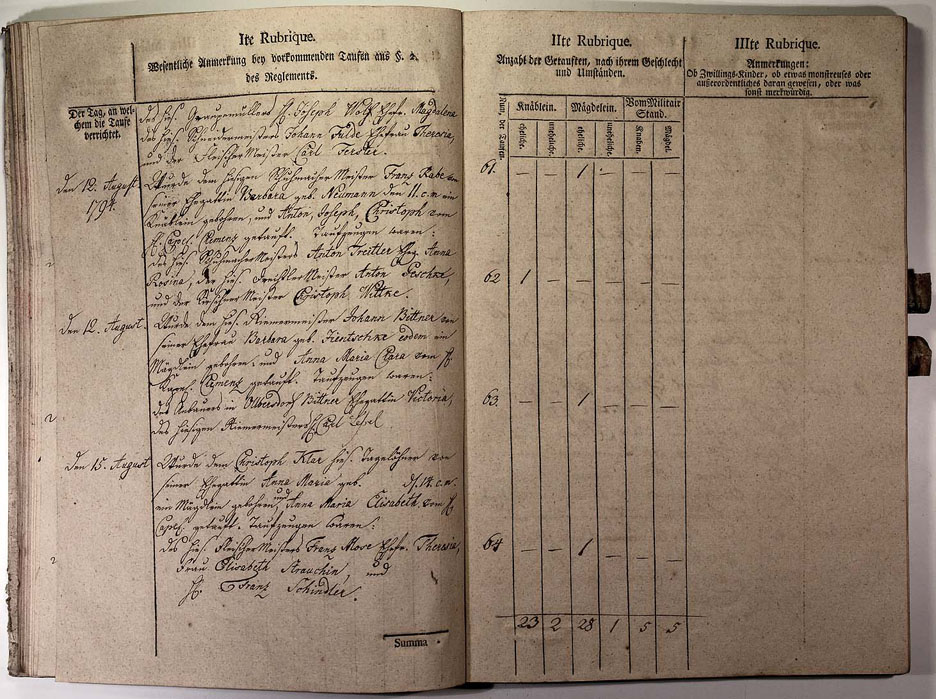 Ite Rubrique.
Wesentliche Anmerkung bey vorkommenden Taufen aus §. 2.
des Reglements.
Der Tag, an wel-
chem die Taufe
verrichtet.
des hies. Graupenmüllers H. Joseph Wolf Ehefr. Magdalena
des hies. Schneidermeisters Johann Fulde Ehefrau Theresia,
und der Fleischer Meister Carl Ferster.
den 12. August
1794.
Wurde dem hiesigen Schuhmacher Meister Franz Rabe von
seiner Ehegattin Barbara geb. Neumann den 11. c. ein
Knäblein gebohren, und Anton, Joseph, Christoph vom
H. Capel. Clemenz getauft. Taufzeugen waren:
des hies. Schuhmacher Meisters Anton Treitler Eheg. Anna
Rosina, der hies. Meister Anton Peschke,
und der Kirschner Meister Christoph Wittke.
den 12. August.
Wurde dem hies. Riemermeister Johann Bittner von
seiner Ehefrau Barbara geb. Jientschke eodem ein
Mägdlein gebohren, und Anna Maria Clara vom H.
Kapel. Clemenz getauft. Taufzeugen waren:
des in Olbersdorf Bittner Ehegattin Victoria,
des hiesigen Riemermeisters Carl
den 15. August
Wurde dem Christoph Klar hies. Tagelöhner von
seiner Ehegattin Anna Maria geb. d. 14. c. m.
ein Mägdlein gebohren, und Anna Maria Elisabeth vom H.
Capel. getauft. Taufzeugen waren:
des hies. Fleischer Meisters Franz Ehefr. Theresia,
Frau Elisabeth Strauchin, und
H. Franz Schindler.
Summa
IIte Rubrique.
Anzahl der Getauften, nach ihrem Geschlecht
und Umständen.
Num. der Taufen.
Knäblein. Mägdelein. Vom Militair
Stand.
eheliche. uneheliche. eheliche. uneheliche. Knaben. Mägdel.
61. — — 1 — — —
62 1 — — — — —
63. — — 1 — — —
64 — — 1 — — —
23 2 28 1 5 5
IIIte Rubrique.
Anmerkungen:
Ob Zwillings-Kinder, ob etwas monstreuses oder
außerordentliches daran gewesen, oder was
sonst merkwürdig.